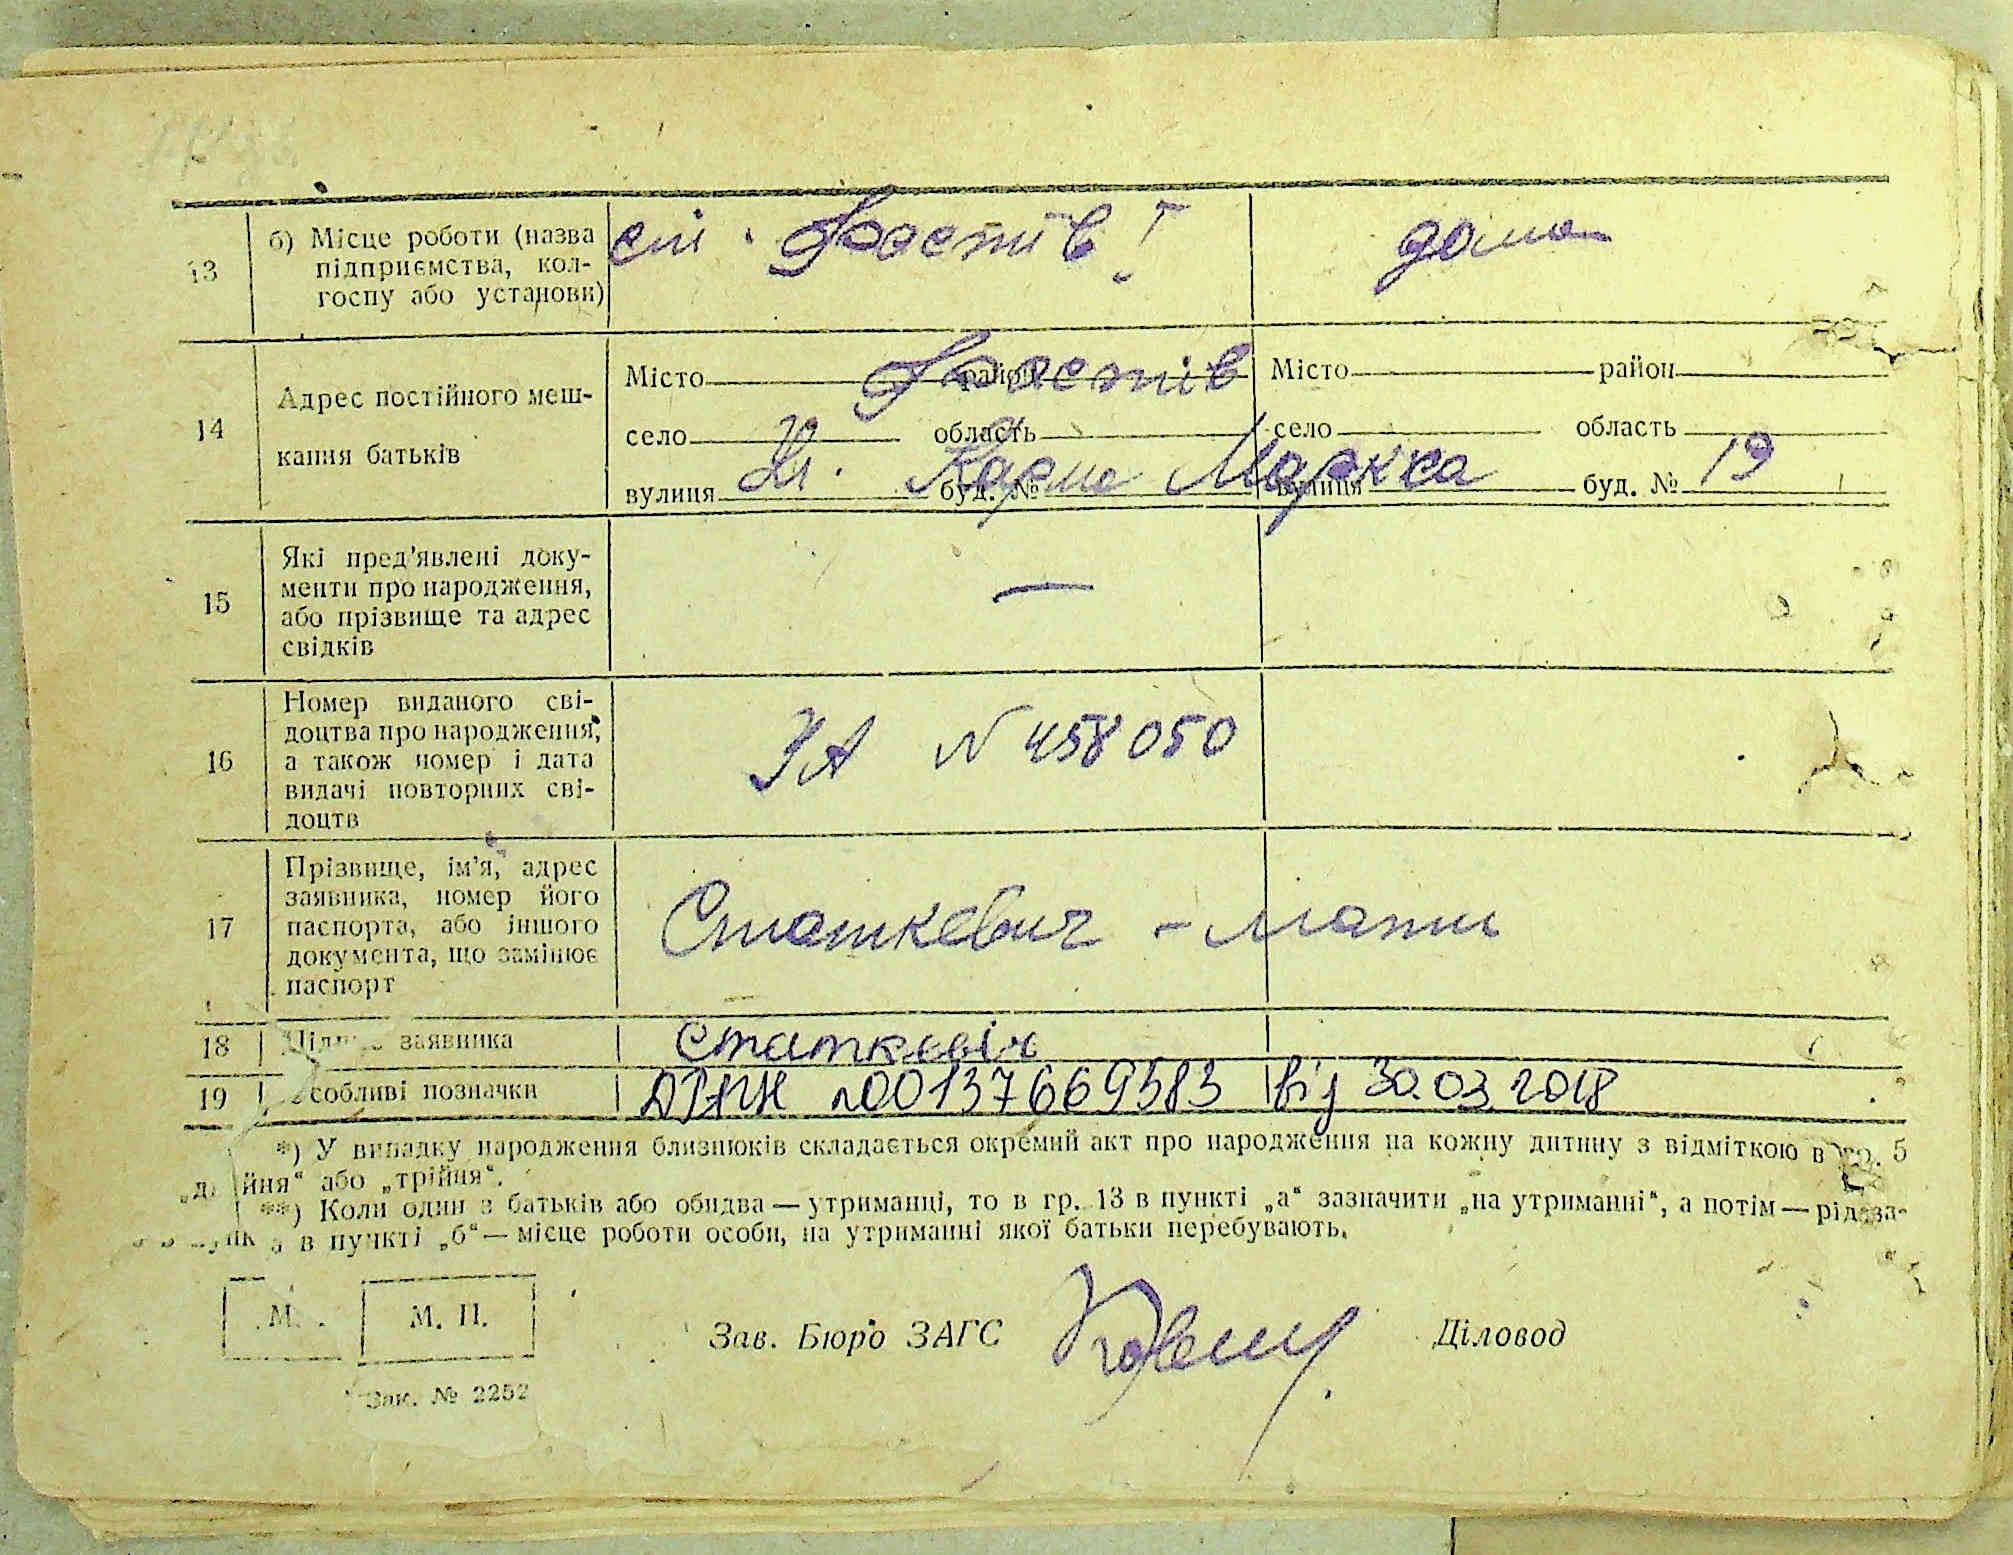 13
б) Місце роботи (назва
підприємства, кол-
госпу або установи)
ст. Фастів І
дома
14
Адрес постійного меш-
кання батьків
Місто Фастів район
село область
вулиця Ул. Карла Маркса буд. №
Місто район
село область
вулиця буд. № 19
15
Які пред'явлені доку-
менти про народження,
або прізвище та адрес
свідків
—
16
Номер виданого сві-
доцтва про народження,
а також номер і дата
видачі повторних сві-
доцтв
УА N 458050
17
Прізвище, ім'я, адрес
заявника, номер його
паспорта, або іншого
документа, що замінює
паспорт
Статкевич - мати
18 Підпис заявника Статкевіч
19 Особливі позначки 00137669583 від 30.03.2018
*) У випадку народження близнюків складається окремий акт про народження на кожну дитину з відміткою в гр. 5
„двійня“ або „трійня“.
**) Коли один з батьків або обидва — утриманці, то в гр. 13 в пункті „а“ зазначити „на утриманні“, а потім —
в пункті „б“ — місце роботи особи, на утриманні якої батьки перебувають.
М.
М. П.
Зав. Бюро ЗАГС
Діловод
Зак. № 2252